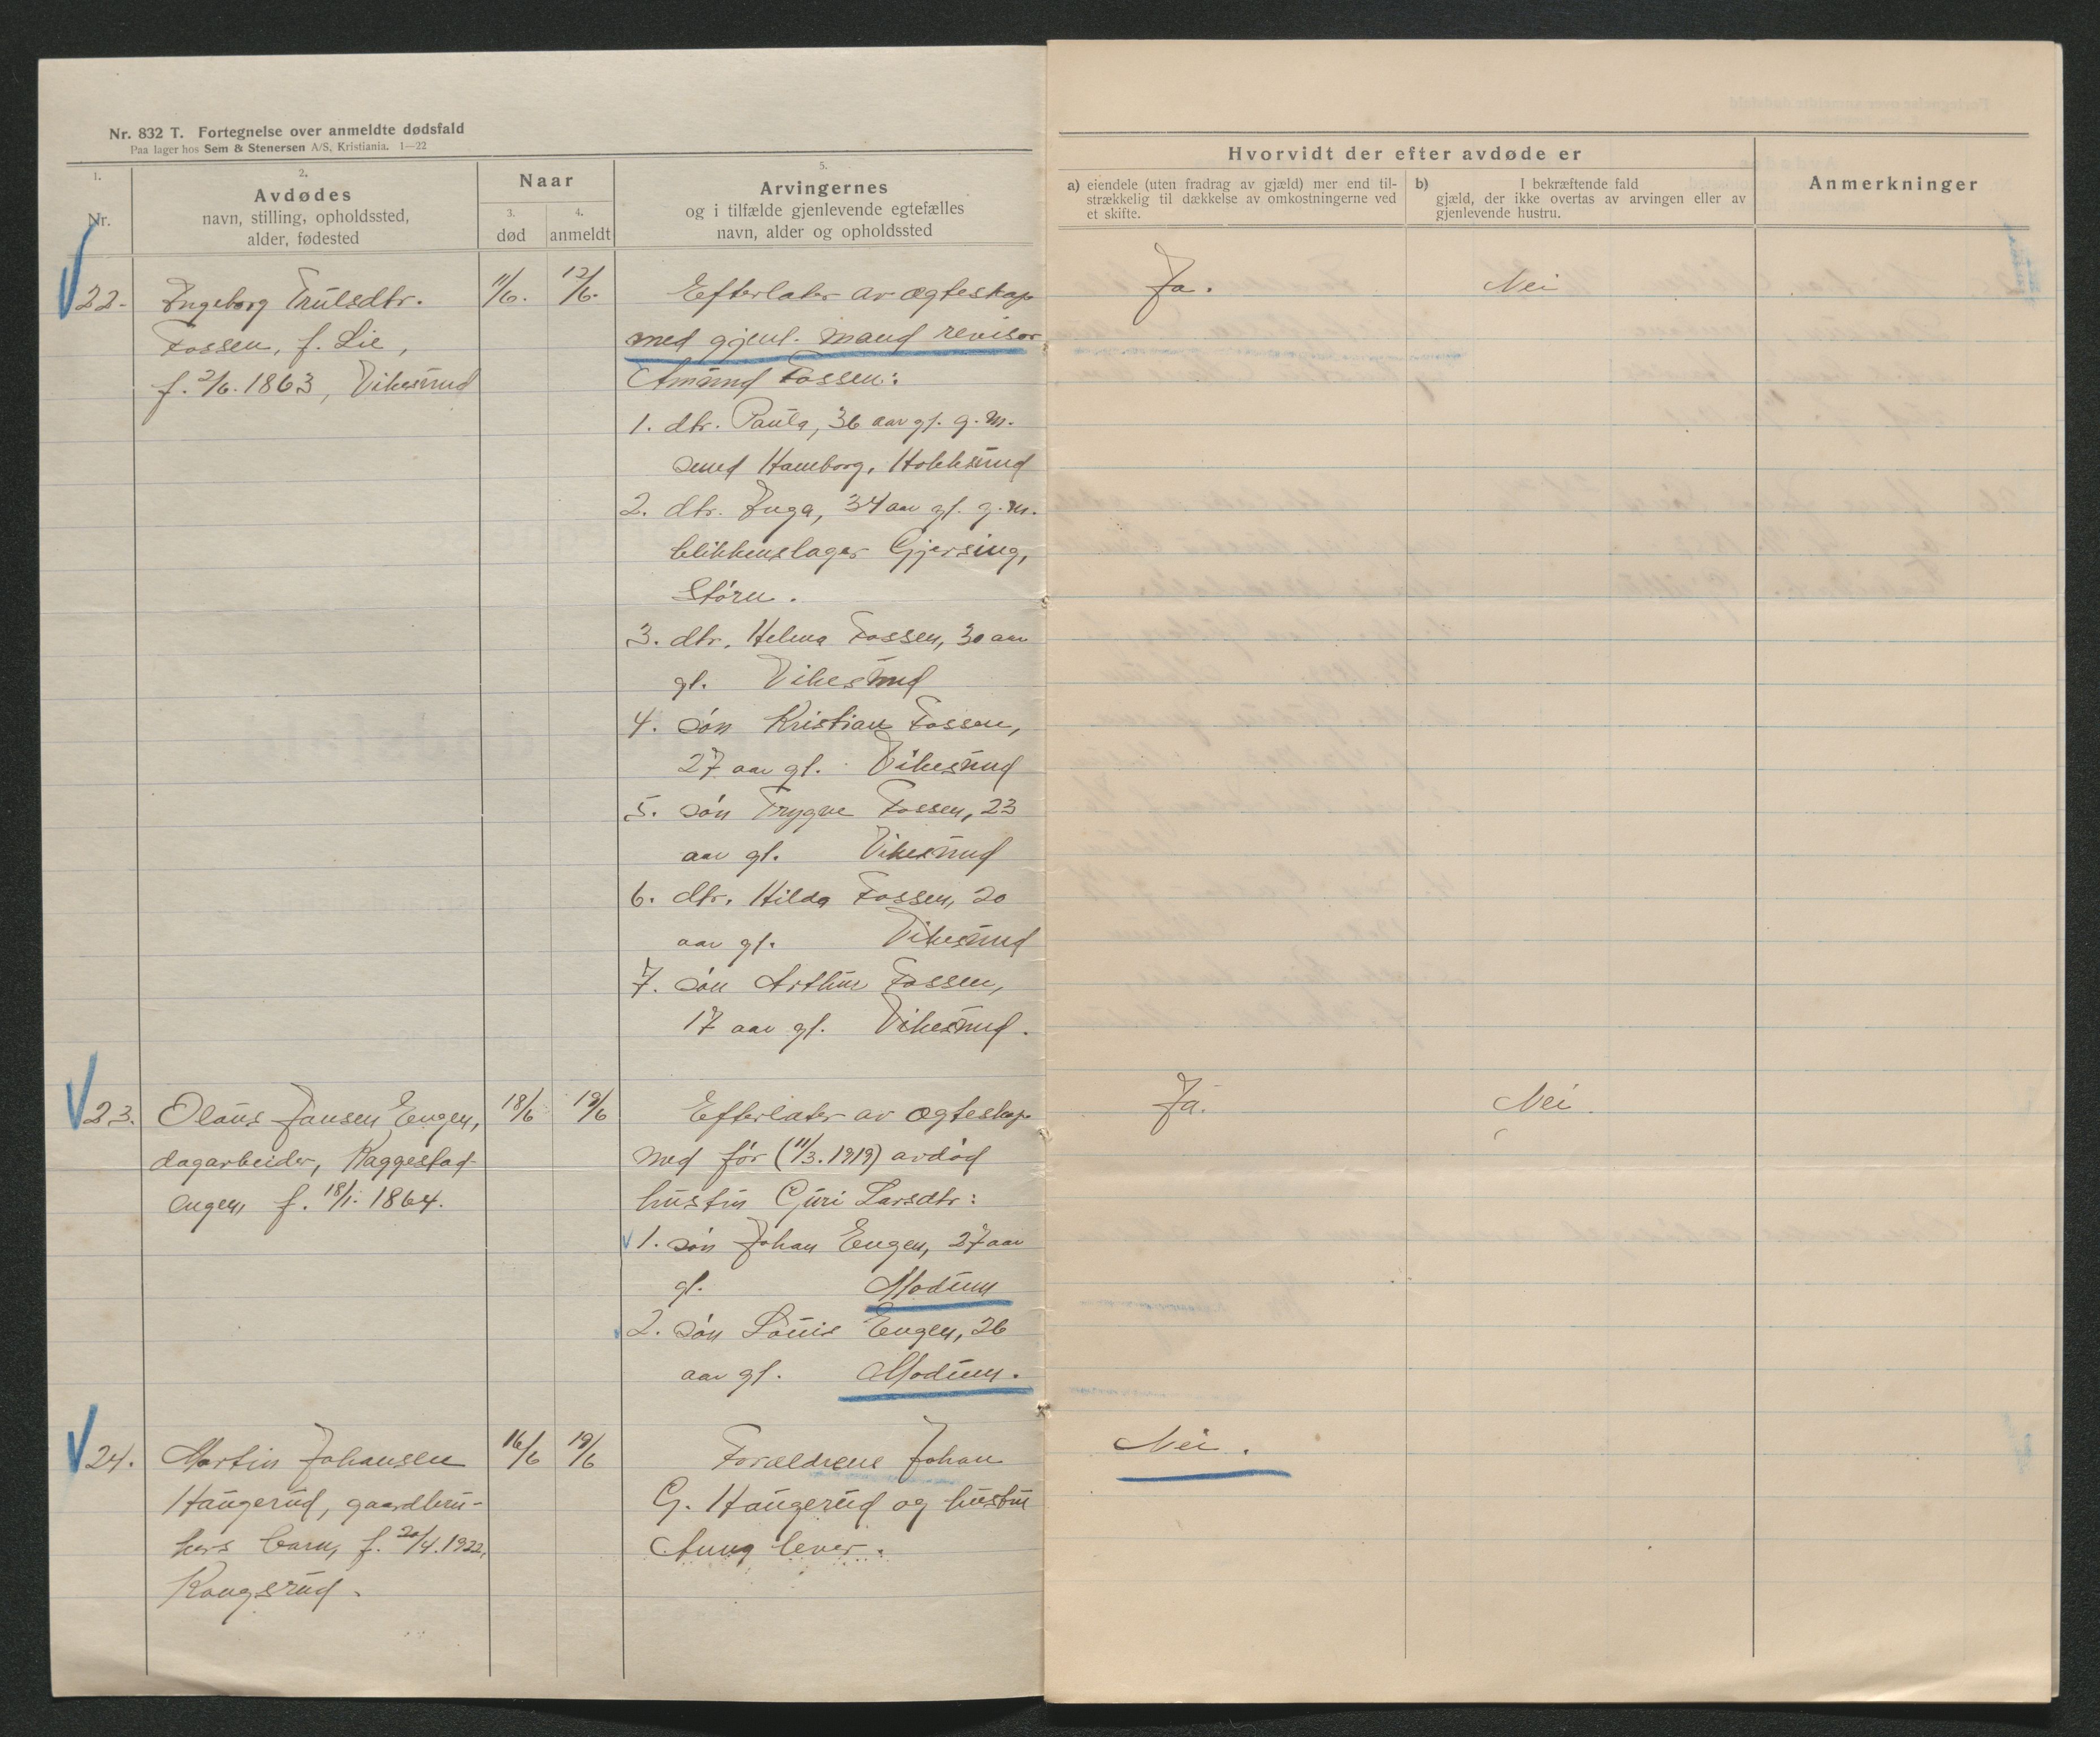 Nr. 832 T. Fortegnelse over anmeldte dødsfald
Paa lager hos Sem & Stenersen A/S, Kristiania. 1—22
1.
Nr.
2.
Avdødes
navn, stilling, opholdssted,
alder, fødested
Naar
3.
død
4.
anmeldt
5.
Arvingernes
og i tilfælde gjenlevende egtefælles
navn, alder og opholdssted
Hvorvidt der efter avdøde er
a) eiendele (uten fradrag av gjæld) mer end til-
strækkelig til dækkelse av omkostningerne ved
et skifte.
b) I bekræftende fald
gjæld, der ikke overtas av arvingen eller av
gjenlevende hustru.
Anmerkninger
22. Ingeborg Trulsdtr.
Fossen, f. Lie,
f. 2/6. 1863, Vikesund
11/6. 12/6.
Efterlater av ægteskap
med gjenl. mand revisor
Amund Fossen:
1. dtr. Paula, 36 aar gl. g. m.
smed Hamborg, Hokksund
2. dtr. Inga, 34 aar gl. g. m.
blikkenslager Gjersing,
Støren.
3. dtr. Helma Fossen, 30 aar
gl. Vikesund
4. søn Kristian Fossen,
27 aar gl. Vikesund
5. søn Trygve Fossen, 23
aar gl. Vikesund
6. dtr. Hilda Fossen, 20
aar gl. Vikesund
7. søn Arthur Fossen,
17 aar gl. Vikesund.
Ja.
Nei
23. Olaus Jansen Engen,
dagarbeider, Kaggestad-
engen, f. 18/1. 1864.
18/6 19/6
Efterlater av ægteskap
med før (11/3. 1919) avdød
hustru Guri Larsdtr:
1. søn Johan Engen, 27 aar
gl. Modum
2. søn Louis Engen, 26
aar gl. Modum.
Ja.
Nei.
24. Martin Johansen
Haugerud, gaardbru-
kers barn, f. 20/4. 1922,
Kongsrud.
16/6 19/6
Forældrene Johan
G. Haugerud og hustru
Anna lever.
Nei.